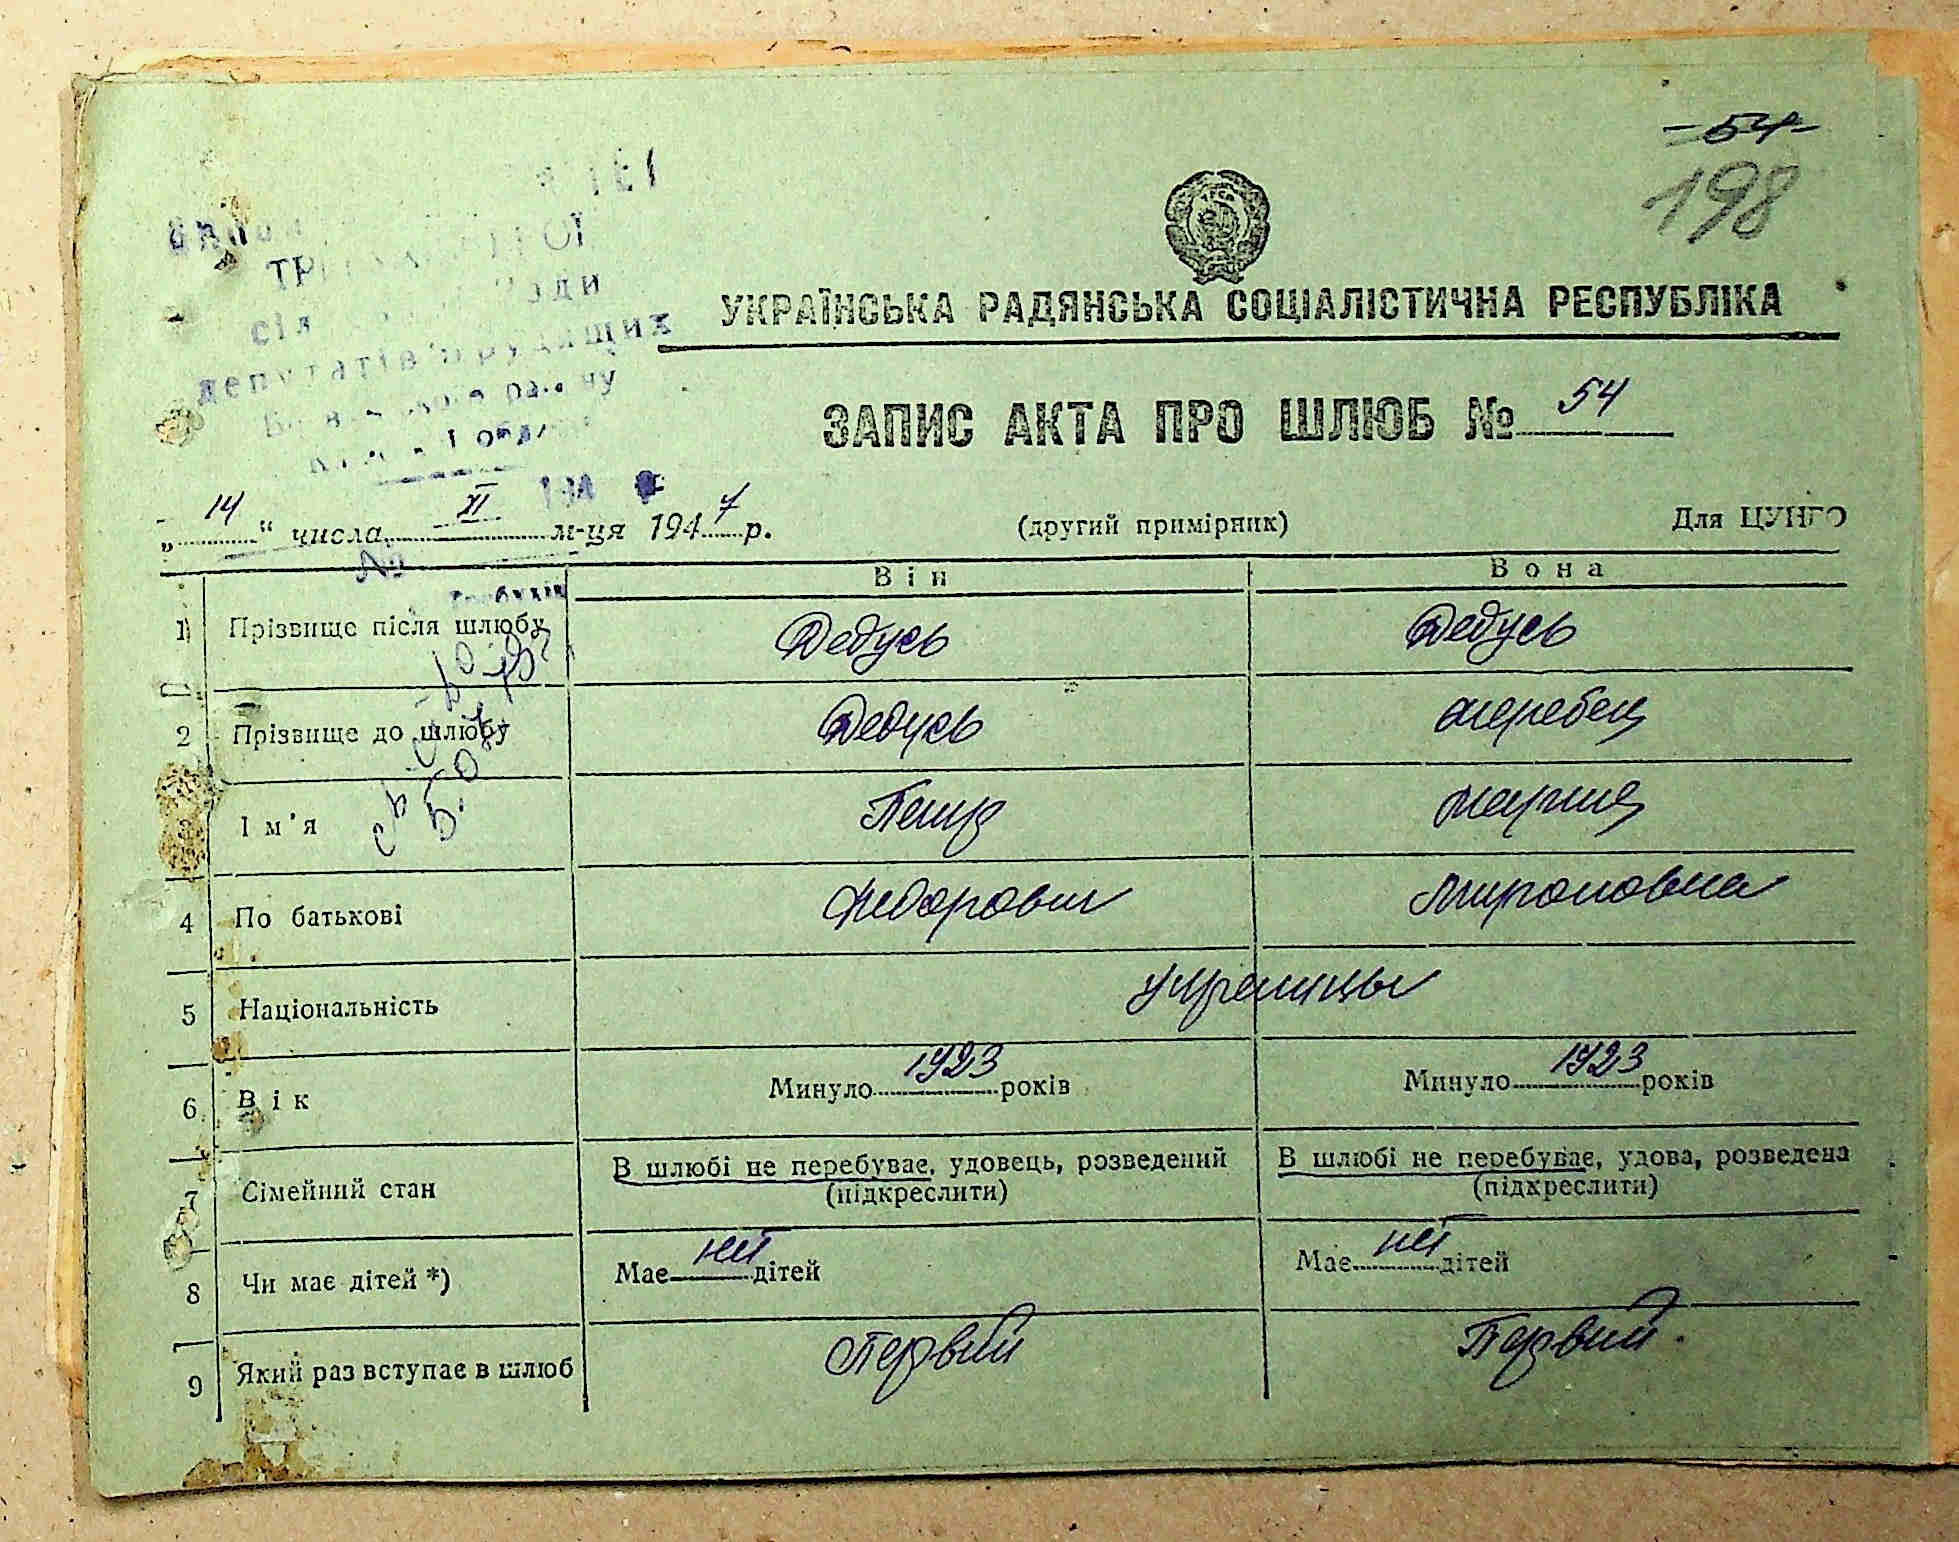 -54-
198
УКРАЇНСЬКА РАДЯНСЬКА СОЦІАЛІСТИЧНА РЕСПУБЛІКА
депутатів трудящих
ЗАПИС АКТА ПРО ШЛЮБ № 54
„ 14 “ числа XI м-ця 1947 р. (другий примірник) Для ЦУНГО
№
Він Вона
1 Прізвище після шлюбу Дедусь Дедусь
2 Прізвище до шлюбу Дедусь Жеребец
3 Ім’я Петр Мария
4 По батькові Федорович Мироновна
5 Національність украинцы
6 Вік Минуло 1923 років Минуло 1923 років
7 Сімейний стан В шлюбі не перебуває, удовець, розведений В шлюбі не перебуває, удова, розведена
(підкреслити) (підкреслити)
8 Чи має дітей *) Має нет дітей Має нет дітей
9 Який раз вступає в шлюб Первый Первый.